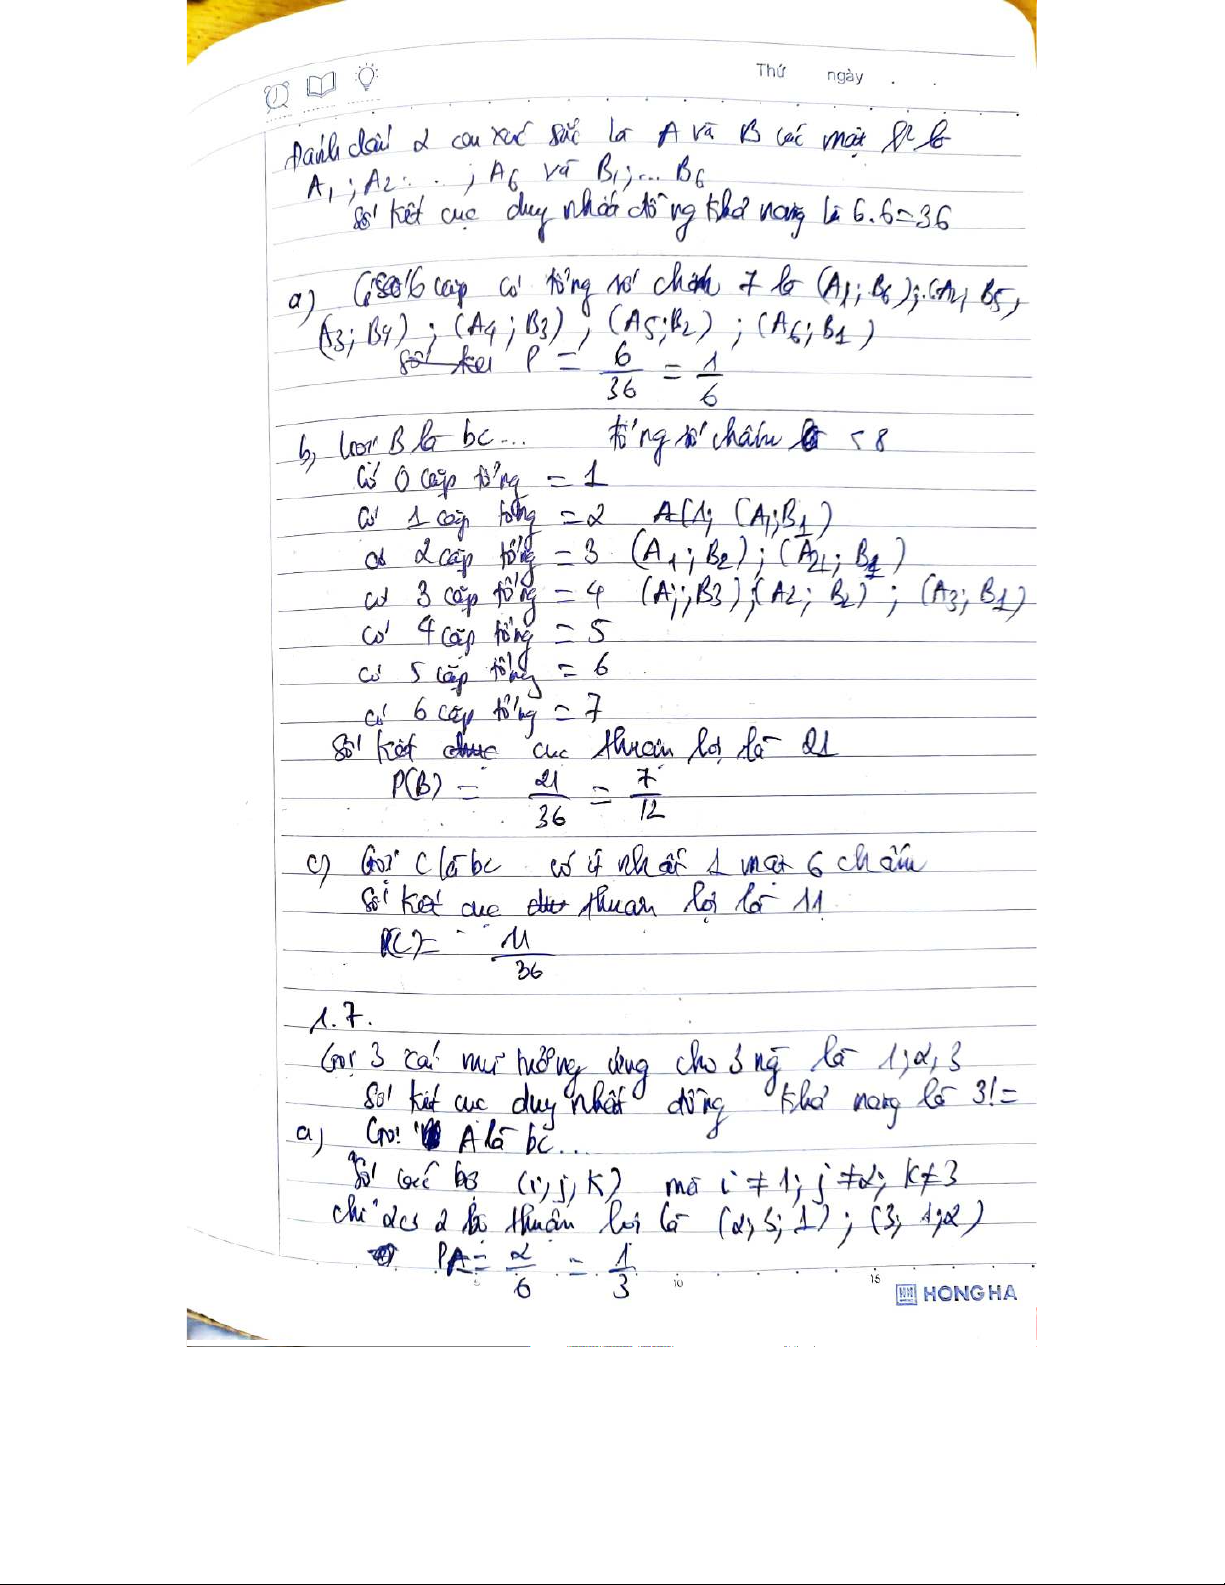 Thứ ngày
Đánh dấu 2 con xúc sắc là A và B các mặt lll là
A1 ; A2 . . . ; A6 và B1 ; ... B6
Số kết cục duy nhất đồng khả năng là 6.6=36
a) 6 cặp có tổng số chấm 7 là (A1; B6); (A2; B5,
(A3; B4) ; (A4 ; B3) ; (A5;B2) ; (A6; B1)
P = 6/36 = 1/6
b, Gọi B là bc... tổng số chấm < 8
Có 0 cặp tổng = 1
có 1 cặp tổng =2 (A1;B1)
có 2 cặp tổng = 3 (A1 ; B2) ; (A2; B1)
có 3 cặp tổng = 4 (A1; B3) ; (A2 ; B2) ; (A3; B1)
có 4 cặp tổng = 5
có 5 cặp tổng = 6
có 6 cặp tổng = 7
Số kết cục thuận lợi là 21
P(B) = 21/36 = 7/12
c) Gọi C là bc có ít nhất 1 mặt 6 chấm
Số kết cục thuận lợi là 11
P(C)= 11/36
1.7.
Gọi 3 cái mũ tương ứng cho 3 ng là 1; 2, 3
Số kết cục duy nhất đồng khả năng là 3! =
a) Gọi A là bc...
Số các bộ (i; j, k) mà i ≠ 1; j ≠ 2; k ≠ 3
chỉ có 2 bộ thuận lợi là (2; 3; 1) ; (3; 1;2)
PA = 2/6 = 1/3
10 15
HONG HA